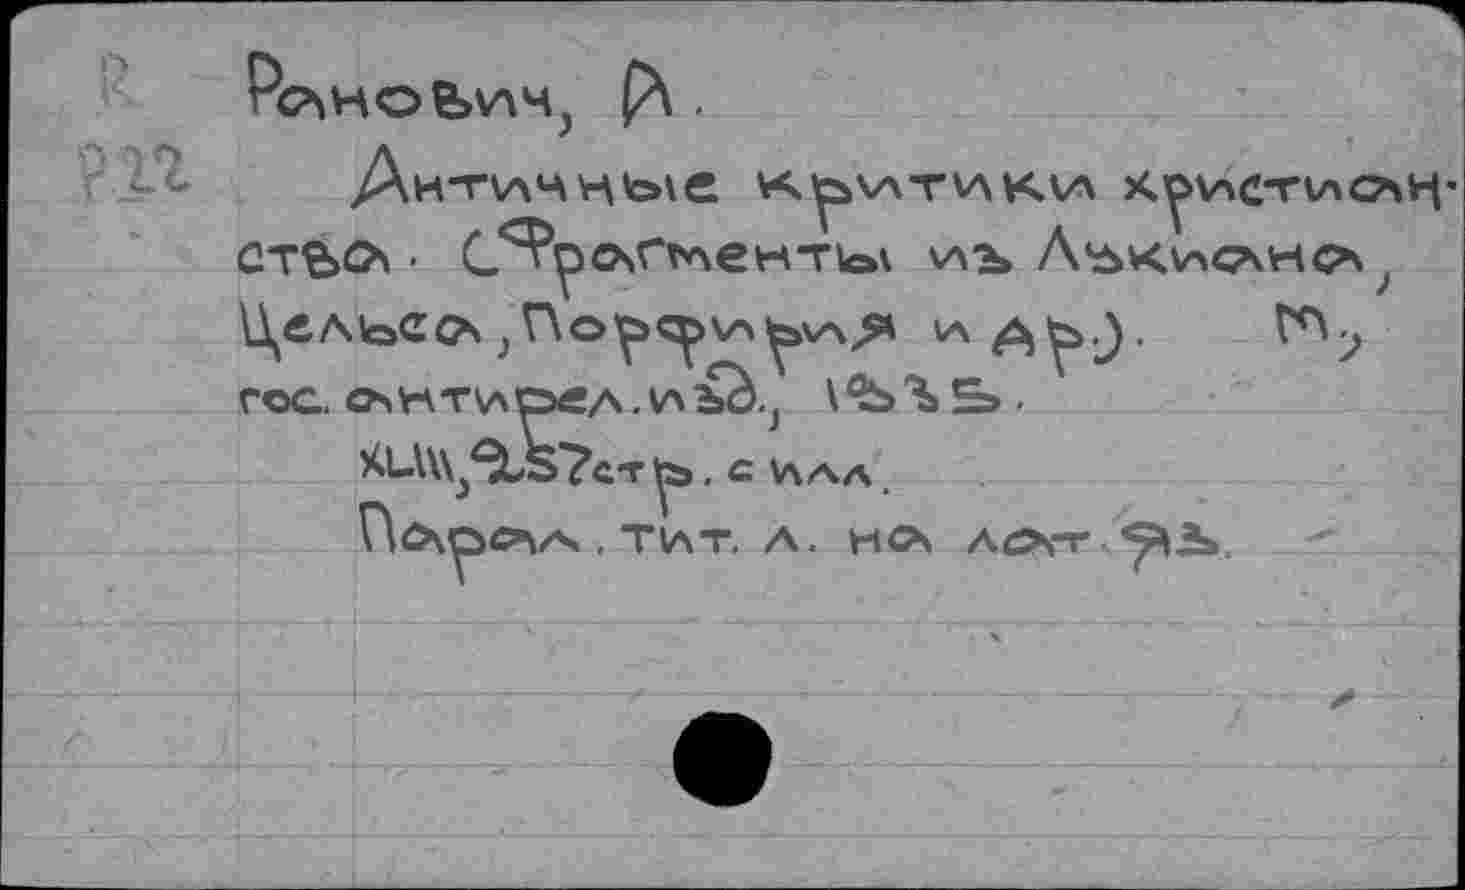 R Рановић, А.
P22 Античные критики христиан-
ства. (Фрагменты из Лукиана,
Цельса, Порфирия и др.). М.,
гос. антирел. изд., 1935.
XLIII, 257 стр. с илл.
Парал. тит. л. на лат. яз.